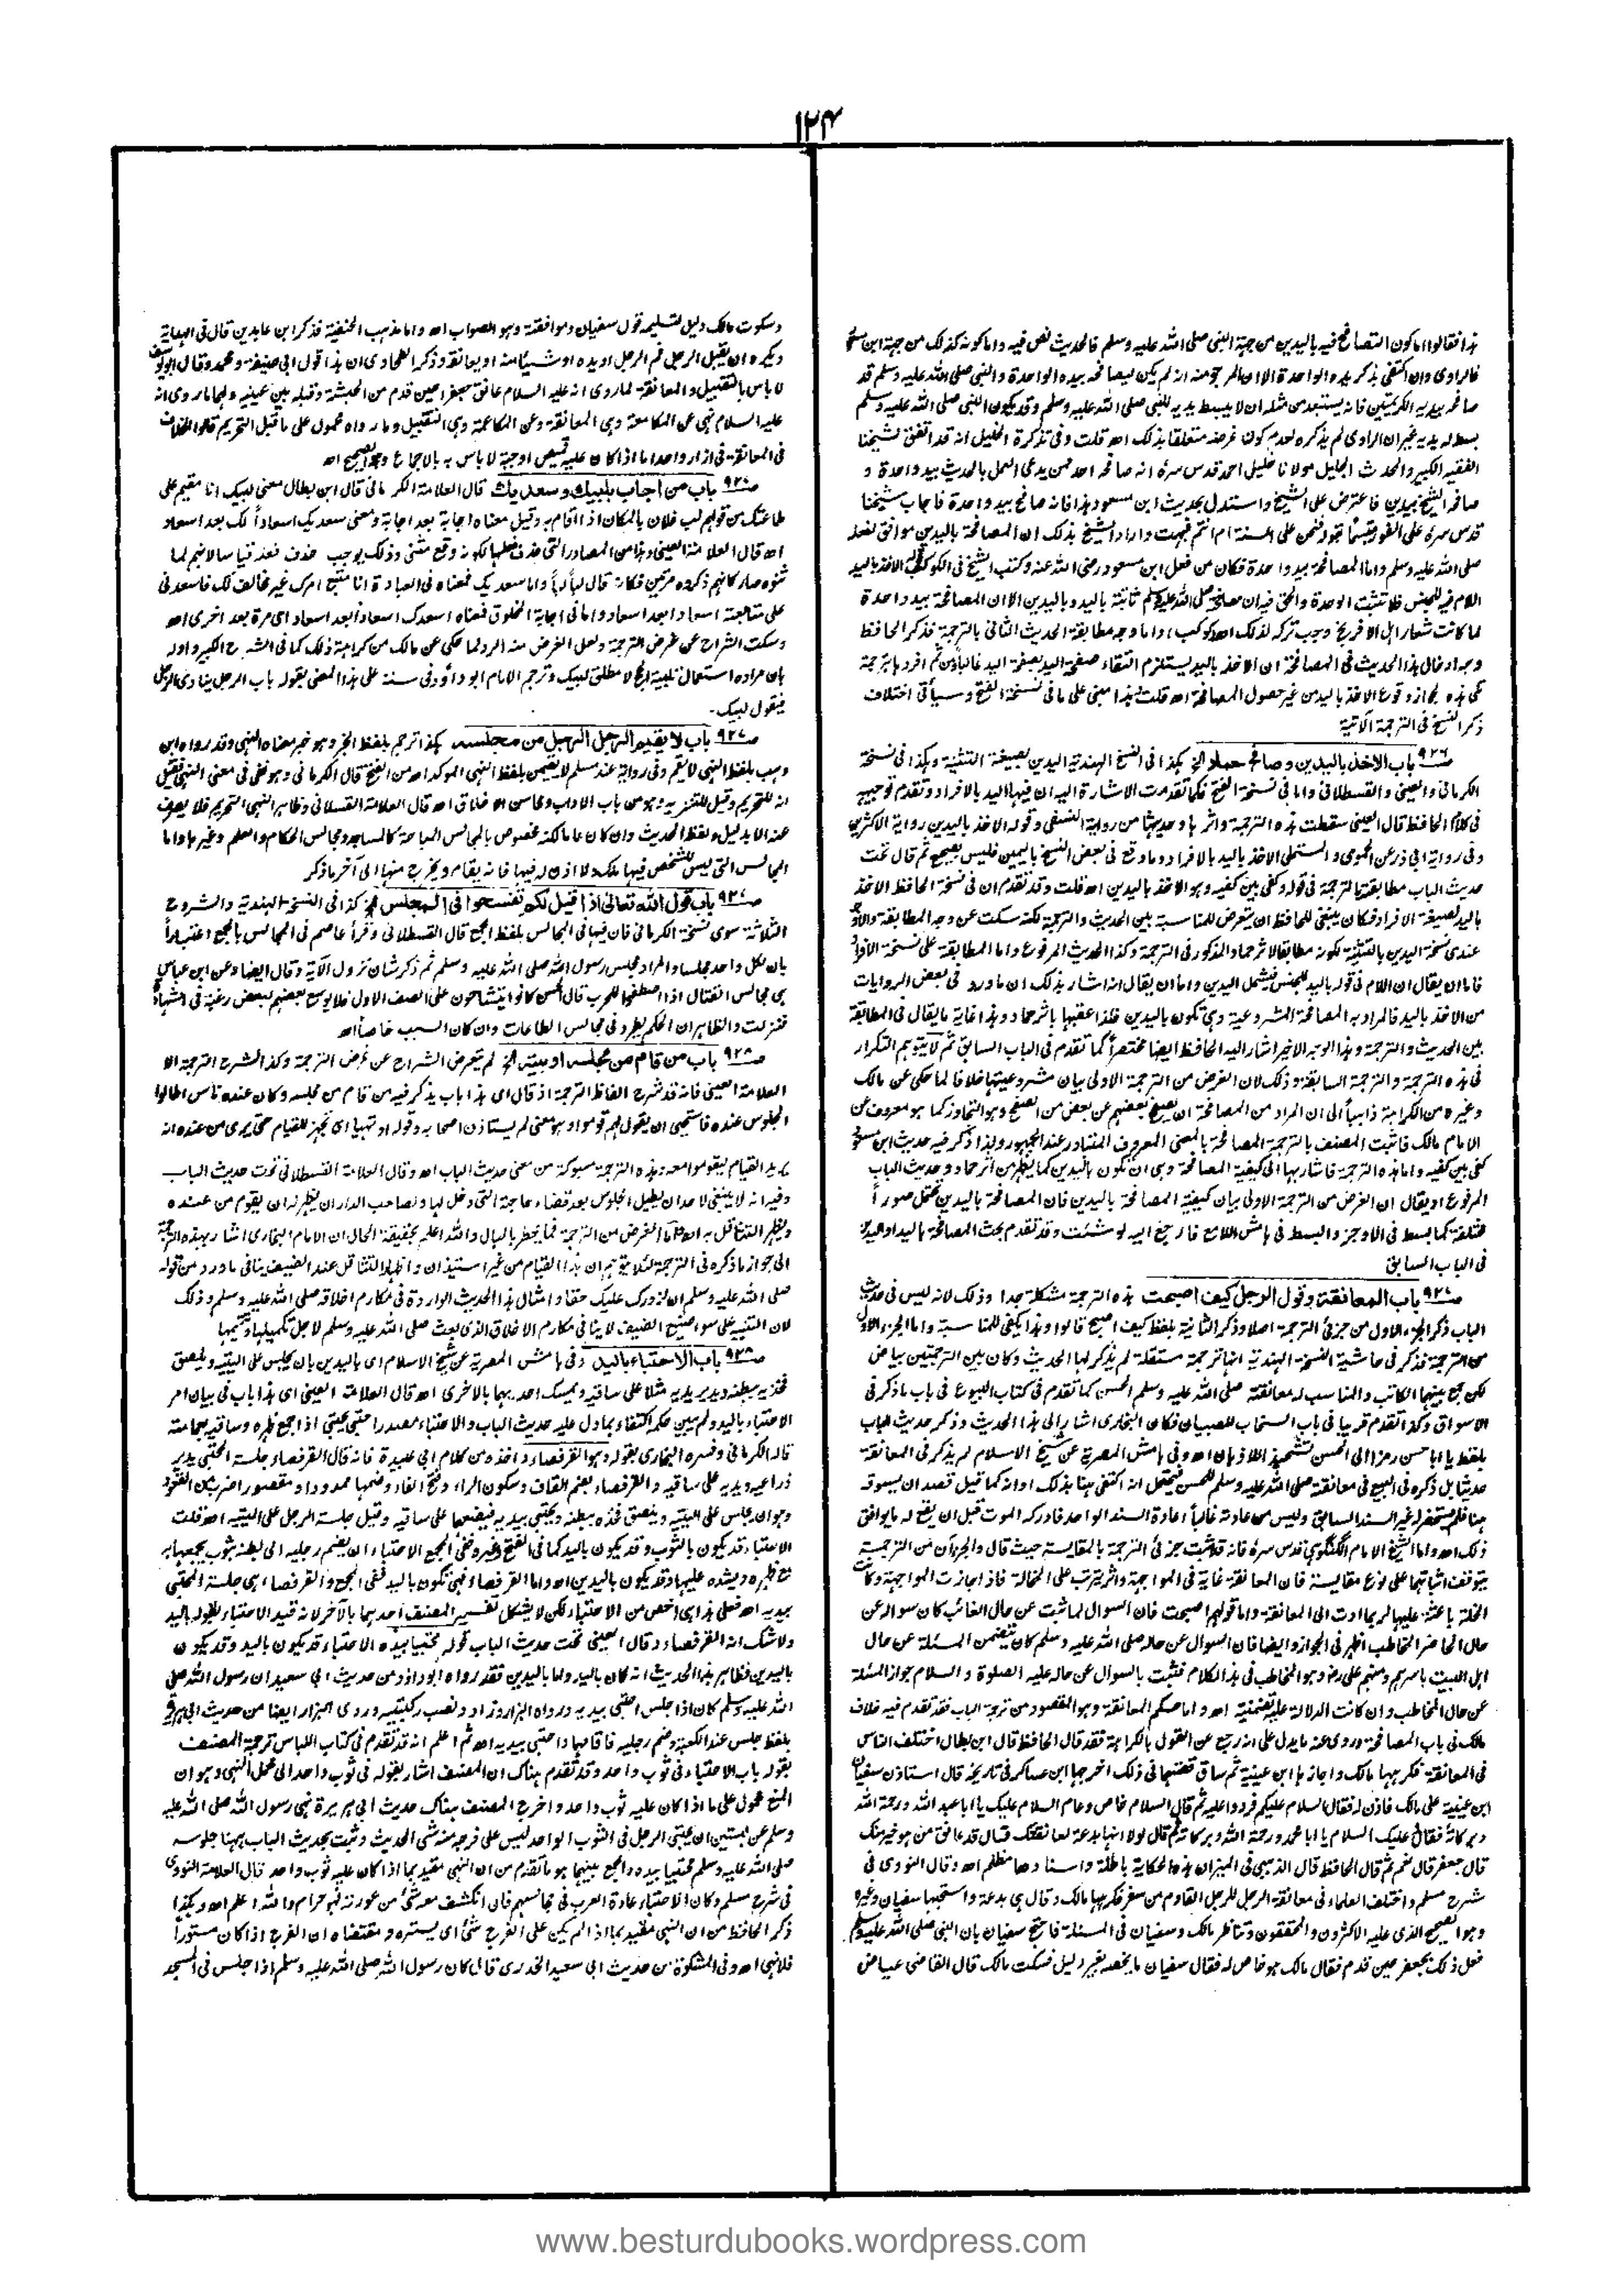 ۱۲۴
ہذا فقالوا اما کون التصافح فیہ بالیدین من جہۃ النبی صلی اللہ علیہ وسلم فالحدیث نص فیہ واما کونہ کذلک من جہۃ ابن مسعود
فالراوی وان اکتفی بذکر یدہ الواحدۃ الا ان المرجو منہ انہ لم یکن لیصافحہ بیدہ الواحدۃ والنبی صلی اللہ علیہ وسلم قد
صافحہ بیدیہ الکریمتین فانہ یستبعد من مثلہ ان لا یبسط یدیہ للنبی صلی اللہ علیہ وسلم وقد یکون النبی صلی اللہ علیہ وسلم
بسط لہ یدیہ غیر ان الراوی لم یذکرہ لعدم کون غرضہ متعلقا بذلک اھ قلت وفی تذکرۃ الخلیل انہ قد اتفق لشیخنا
الفقیہ الکبیر والمحدث الجلیل مولانا خلیل احمد قدس سرہ انہ صافحہ احد ممن یدعی العمل بالحدیث بید واحدۃ و
صافحہ الشیخ بیدین فاعترض علی الشیخ واستدل بحدیث ابن مسعود ہذا فانہ صافح بید واحدۃ فاجاب شیخنا
قدس سرہ علی الفور متبسماً بقولہ فنحن علی السنۃ ام انتم فبہت واراد الشیخ بذلک ان المصافحۃ بالیدین موافق لفعلہ
صلی اللہ علیہ وسلم واما المصافحۃ بید واحدۃ فکان من فعل ابن مسعود رضی اللہ عنہ وکتب الشیخ فی الکوکب الاخذ بالید
اللام فیہ للجنس فلا تثبت الوحدۃ والحق فیہ ان مصافحتہ صلی اللہ علیہ وسلم ثابتۃ بالید وبالیدین الا ان المصافحۃ بید واحدۃ
لما کانت شعار اہل الافرنج وجب ترکہ لذلک اھ کوکب، واما وجہ مطابقۃ الحدیث الثانی بالترجمۃ فذکر الحافظ
وجہ ادخال ہذا الحدیث فی المصافحۃ ان الاخذ بالید یستلزم التقاء صفحۃ الید بصفحۃ الید غالباً ومن ثم افردہا بترجمۃ
تلی ہذہ لجواز وقوع الاخذ بالید من غیر حصول المصافحۃ اھ قلت ہذا مبنی علی ما فی نسخۃ الفتح وسیأتی اختلاف
ذکر النسخ فی الترجمۃ الآتیۃ
ص۹۲۶ باب الاخذ بالیدین وصافح حماد الخ ہکذا فی النسخ الہندیۃ الیدین بصیغۃ التثنیۃ وہکذا فی نسخۃ
الکرمانی والعینی والقسطلانی واما فی نسخۃ الفتح فکما تقدمت الاشارۃ الیہ ان فیہا الید بالافراد وتقدم توجیہہ
فی کلام الحافظ قال العینی سقطت ہذہ الترجمۃ واثرہا وحدیثہا من روایۃ النسفی وقولہ الاخذ بالیدین روایۃ الاکثرین
وفی روایۃ ابی ذر عن الحموی والمستملی الاخذ بالید بالافراد وما وقع فی بعض النسخ بالیمین فلیس بصحیح ثم قال تحت
حدیث الباب مطابقتہ للترجمۃ فی قولہ وکفی بین کفیہ وہو الاخذ بالیدین اھ قلت وقد تقدم ان فی نسخۃ الحافظ الاخذ
بالید بصیغۃ الافراد فکان ینبغی للحافظ ان یتعرض للمناسبۃ بین الحدیث والترجمۃ لکنہ سکت عن وجہ المطابقۃ والاوجہ
عندی نسخۃ الیدین بالتثنیۃ لکونہ مطابقا لاثر حماد المذکور فی الترجمۃ وکذا الحدیث المرفوع واما المطابقۃ علی نسخۃ الافراد
فاما ان یقال ان اللام فی قولہ بالید للجنس فیشمل الیدین واما ان یقال انہ اشار بذلک ان ما ورد فی بعض الروایات
من الاخذ بالید فالمراد بہ المصافحۃ الشروعیۃ وہی تکون بالیدین فلذا عقبہا باثر حماد وہذا غایۃ ما یقال فی المطابقۃ
بین الحدیث والترجمۃ وہذا الوجہ الاخیر اشار الیہ الحافظ ایضا مختصراً کما تقدم فی الباب السابق ثم لا یتوہم التکرار
فی ہذہ الترجمۃ والترجمۃ السابقۃ وذلک لان الغرض من الترجمۃ الاولی بیان مشروعیتہا خلافا لما حکی عن مالک
وغیرہ من الکراہۃ ذاہباً الی ان المراد من المصافحۃ ان یصفح بعضہم عن بعض من الصفح وہو التجاوز کما ہو معروف عن
الامام مالک فاثبت المصنف بالترجمۃ المصافحۃ بالمعنی المعروف المتبادر عند الجمہور ولذا ذکر فیہ حدیث ابن مسعود
کفی بین کفیہ واما ہذہ الترجمۃ فاشار بہا الی کیفیۃ المصافحۃ وہی ان تکون بالیدین کما یظہر من اثر حماد وحدیث الباب
المرفوع او یقال ان الغرض من الترجمۃ الاولی بیان کیفیۃ المصافحۃ بالیدین فان المصافحۃ بالیدین تحتمل صوراً
مختلفۃ کما بسط فی الاوجز والبسط فی ہامش اللامع فارجع الیہ لو شئت وقد تقدم بحث المصافحۃ بالید او الیدین
فی الباب السابق
ص۹۲۷ باب المعانقۃ وقول الرجل کیف اصبحت ہذہ الترجمۃ مشکلۃ جدا وذلک لانہ لیس فی حدیث
الباب ذکر الجزء الاول من جزئی الترجمۃ اصلا وذکر الثانیۃ بلفظ کیف اصبح قالوا وہذا یکفی للمناسبۃ واما الجزء الاول
من الترجمۃ فذکر فی حاشیۃ النسخۃ الہندیۃ انہا ترجمۃ مستقلۃ لم یذکر لہا الحدیث وکان بین الترجمتین بیاض
لکن جمع بینہما الکاتب والمناسب لہ معانقتہ صلی اللہ علیہ وسلم الحسن کما تقدم فی کتاب البیوع فی باب ما ذکر فی
الاسواق وکذا تقدم قریبا فی باب السخاب للصبیان فکان البخاری اشار الی ہذا الحدیث وذکر حدیث الباب
بلفظ یا ابا حسن رمزا الی الحسن تشحیذ اللاذہان اھ وفی ہامش المصریۃ عن شیخ الاسلام لم یذکر فی المعانقۃ
حدیثا بل ذکرہ فی البیع فی معانقتہ صلی اللہ علیہ وسلم للحسن فیحتمل انہ اکتفی ہنا بذلک او انہ کما قیل قصد ان یسوقہ
ہنا فلم یستحضر لہ غیر السند السابق ولیس من عادتہ غالباً اعادۃ السند الواحد فادرکہ الموت قبل ان یقع لہ ما یوافق
ذلک اھ واما الشیخ الامام الگنگوہی قدس سرہ فانہ قد اثبت جزئی الترجمۃ بالمقایسۃ حیث قال والجزآن من الترجمۃ
یتوقف اثباتہا علی نوع مقایسۃ فان المعانقۃ غایۃ فی المواجہۃ واثر یترتب علی الخالۃ فاذا جازت المواجہۃ وکانت
الخلۃ باعثۃ علیہا لربما ادت الی المعانقۃ واما قولہم اصبحت فان السوال لما ثبت عن حال الغائب کان سوالہ عن
حال الحاضر المخاطب اظہر فی الجواز وایضا فان السوال عن حالہ صلی اللہ علیہ وسلم کان یتضمن المسئلۃ عن حال
اہل البیت باسرہم ومنہم علی رض وہو المخاطب فی ہذا الکلام فثبت بالسوال عن حالہ علیہ الصلوۃ والسلام جواز المسئلۃ
عن حال المخاطب وان کانت الدلالۃ علیہ تضمنیۃ اھ واما حکم المعانقۃ وہو المقصود من ترجمۃ الباب فقد تقدم فیہ خلاف
مالک فی باب المصافحۃ وروی عنہ ما یدل علی انہ رجع عن القول بالکراہۃ فقد قال الحافظ قال ابن بطال اختلف الناس
فی المعانقۃ فکرہہا مالک واجازہا ابن عیینۃ ثم ساق قصتہما فی ذلک اخرجہا ابن عساکر فی تاریخہ قال استاذن سفیان
ابن عیینۃ علی مالک فاذن لہ فقال السلام علیکم فردوا علیہ ثم قال السلام خاص وعام السلام علیک یا ابا عبد اللہ ورحمۃ اللہ
وبرکاتہ فقال علیک السلام یا ابا محمد ورحمۃ اللہ وبرکاتہ ثم قال لولا انہا بدعۃ لعانقتک فقال قد عانق من ہو خیر منک
قال جعفر قال نعم ثم قال الحافظ قال الذہبی فی المیزان ہذہ الحکایۃ باطلۃ واسنادہا مظلم اھ وقال النووی فی
شرح مسلم واختلف العلماء فی معانقۃ الرجل للرجل القادم من سفر فکرہہا مالک وقال ہی بدعۃ واستحبہا سفیان وغیرہ
وہو الصحیح الذی علیہ الاکثرون والمحققون وتناظر مالک وسفیان فی المسئلۃ فاحتج سفیان بان النبی صلی اللہ علیہ وسلم
فعل ذلک بجعفر حین قدم فقال مالک ہو خاص لہ فقال سفیان ما یخصہ بغیر دلیل فسکت مالک قال القاضی عیاض
وسکوت مالک دلیل لتسلیمہ قول سفیان وموافقتہ وہو الصواب اھ واما مذہب الحنفیۃ فذکر ابن عابدین قال فی الہدایۃ
ویکرہ ان یقبل الرجل فم الرجل او یدہ او شیئاً منہ او یعانقہ وذکر الطحاوی ان ہذا قول ابی حنیفۃ ومحمد وقال ابو یوسف
لا باس بالتقبیل والمعانقۃ لما روی انہ علیہ السلام عانق جعفرا حین قدم من الحبشۃ وقبلہ بین عینیہ ولہما ما روی انہ
علیہ السلام نہی عن المکامعۃ وہی المعانقۃ وعن المکاعمۃ وہی التقبیل وما رواہ محمول علی ما قبل التحریم قالوا الخلاف
فی المعانقۃ فی ازار واحد اما اذا کان علیہ قمیص او جبۃ لا باس بہ بالاجماع وہو الصحیح اھ
ص۹۲۷ باب من اجاب بلبیك وسعدیك قال العلامۃ الکرمانی قال ابن بطال معنی لبیک انا مقیم علی
طاعتک من قولہم لب فلان بالمکان اذا اقام بہ وقیل معناہ اجابۃ بعد اجابۃ ومعنی سعدیک اسعاداً لک بعد اسعاد
اھ قال العلامۃ العینی وہذا من المصادر التی حذف فعلہا لکونہ وقع مثنی وذلک یوجب حذف فعلہ قیاسا لانہم لما
ثنوہ صار کانہم ذکروہ مرتین فکانہ قال لباً لباً واما سعدیک فمعناہ فی العبادۃ انا متبع امرک غیر مخالف لک فاسعدنی
علی متابعتہ اسعادا بعد اسعاد واما فی اجابۃ المخلوق فمعناہ اسعدک اسعاداً بعد اسعاد ای مرۃ بعد اخری اھ
وسکت الشراح عن غرض الترجمۃ ولعل الغرض منہ الرد لما حکی عن مالک من کراہتہ ذلک کما فی الشرح الکبیر واولہ
بان مرادہ استعمال تلبیۃ الحج لا مطلق لبیک وترجم الامام ابو داؤد فی سننہ علی ہذا المعنی بقولہ باب الرجل ینادی الرجل
فیقول لبیک۔
ص۹۲۷ باب لا یقیم الرجل الرجل من مجلسہ ہکذا ترجم بلفظ الخبر وہو خبر معناہ النہی وقد رواہ ابن
وہب بلفظ النہی لا یقم وفی روایۃ عند مسلم لا یقیمن بلفظ النہی الموکد اھ من الفتح قال الکرمانی وہو نفی فی معنی النہی فقیل
انہ للتحریم وقیل للتنزیہ وہو من باب الآداب ومحاسن الاخلاق اھ قال العلامۃ القسطلانی وظاہر النہی التحریم فلا یصرف
عنہ الا بدلیل ولفظ الحدیث وان کان عاما لکنہ مخصوص بالمجالس المباحۃ کالمساجد ومجالس الحکام والعلم وغیرہا واما
المجالس التی لیس للشخص فیہا ملک ولا اذن لہ فیہا فانہ یقام ویخرج منہا الی آخر ما ذکر
ص۹۲۷ باب قول اللہ تعالی اذا قیل لکم تفسحوا فی المجلس الخ کذا فی النسخۃ الہندیۃ والشروح
الثلاثۃ سوی نسخۃ الکرمانی فان فیہا فی المجالس بلفظ الجمع قال القسطلانی وقرأ عاصم فی المجالس بالجمع اعتباراً
بان لکل واحد مجلسا والمراد مجلس رسول اللہ صلی اللہ علیہ وسلم ثم ذکر شان نزول الآیۃ وقال ایضا وعن ابن عباس
ہی مجالس القتال اذا اصطفوا للحرب قال الحسن کانوا یتشاحون علی الصف الاول فلا یوسع بعضہم لبعض رغبۃ فی الشہادۃ
فنزلت والظاہر ان الحکم یطرد فی مجالس الطاعات وان کان السبب خاصاً اھ
ص۹۲۸ باب من قام من مجلسہ او بیتہ الخ لم یتعرض الشراح عن غرض الترجمۃ وکذا الشرح الترجمۃ الا
العلامۃ العینی فانہ قد شرح الفاظ الترجمۃ اذ قال ای ہذا باب یذکر فیہ من قام من مجلسہ وکان عندہ ناس اطالوا
الجلوس عندہ فاستحیی ان یقول لہم قوموا وہو معنی لم یستاذن اصحابہ وقولہ او تہیأ ای تجہز للقیام حتی یری من عندہ انہ
یرید القیام لیقوموا معہ وہذہ الترجمۃ مسبوکۃ من معنی حدیث الباب اھ وقال العلامۃ القسطلانی تحت حدیث الباب
وفیہ انہ لا ینبغی لاحد ان یطیل الجلوس بعد قضاء حاجتہ التی دخل لہا ولصاحب الدار ان یظہر لہ ان یقوم من عندہ
ویظہر التثاقل بہ اھ واما الغرض من الترجمۃ فما یخطر بالبال واللہ اعلم بحقیقۃ الحال ان الامام البخاری اشار بہذہ الترجمۃ
الی جواز ما ذکرہ فی الترجمۃ لئلا یتوہم ان ہذا القیام من غیر استیذان واظہار التثاقل عند الضیف ینافی ما ورد من قولہ
صلی اللہ علیہ وسلم ان لزورک علیک حقا وامثال ہذا الحدیث الواردۃ فی مکارم اخلاقہ صلی اللہ علیہ وسلم وذلک
لان التنبیہ علی سوء صنیع الضیف لا ینافی مکارم الاخلاق الذی بعث صلی اللہ علیہ وسلم لاجل تکمیلہا وتتمیمہا
ص۹۲۸ باب الاحتباء بالید وفی ہامش المصریۃ عن شیخ الاسلام ای بالیدین بان یجلس علی الیتیہ ویلصق
فخذیہ ببطنہ ویدیر یدیہ مثلا علی ساقیہ ویمسک احدیہما بالاخری اھ قال العلامۃ العینی ای ہذا باب فی بیان امر
الاحتباء بالید ولم یبین حکمہ اکتفاء بما دل علیہ حدیث الباب والاحتباء مصدر احتبی یحتبی اذا جمع ظہرہ وساقیہ بعمامتہ
قالہ الکرمانی وفسرہ البخاری بقولہ وہو القرفصاء واخذہ من کلام ابی عبیدۃ فانہ قال القرفصاء جلسۃ المحتبی یدیر
ذراعیہ ویدیہ علی ساقیہ والقرفصاء بضم القاف وسکون الراء وفتح الفاء وضمہا ممدودا ومقصورا ضرب من القعود
وہو ان یجلس علی الیتیہ ویلصق فخذہ ببطنہ ویحتبی بیدیہ فیضعہما علی ساقیہ وقیل جلسۃ الرجل علی الیتیہ اھ قلت
الاحتباء قد یکون بالثوب وقد یکون بالید کما فی الفتح وغیرہ ففی المجمع الاحتباء ان یضم رجلیہ الی بطنہ بثوب یجمعہا بہ
مع ظہرہ ویشدہ علیہا وقد یکون بالیدین اھ واما القرفصاء فہی تکون بالید ففی المجمع والقرفصاء ہی جلسۃ المحتبی
بیدیہ اھ فعلی ہذا ہی اخص من الاحتباء لکن لا یشکل تفسیر المصنف احدہما بالآخر لانہ قید الاحتباء بقولہ بالید
ولا شک انہ القرفصاء وقال العینی تحت حدیث الباب قولہ محتبیا بیدہ الاحتباء قد یکون بالید وقد یکون
بالیدین فظاہر ہذا الحدیث انہ کان بالید واما بالیدین فقد رواہ ابو داؤد من حدیث ابی سعید ان رسول اللہ صلی
اللہ علیہ وسلم کان اذا جلس احتبی بیدیہ ورواہ البزار وزاد ونصب رکبتیہ وروی البزار ایضا من حدیث ابی ہریرۃ
بلفظ جلس عند الکعبۃ وضم رجلیہ فاقامہا واحتبی بیدیہ اھ ثم اعلم انہ قد تقدم فی کتاب اللباس ترجمۃ المصنف
بقولہ باب الاحتباء فی ثوب واحد وقد تقدم ہناک ان المصنف اشار بقولہ فی ثوب واحد الی محمل النہی وہو ان
المنع محمول علی ما اذا کان علیہ ثوب واحد واخرج المصنف ہناک حدیث ابی ہریرۃ نہی رسول اللہ صلی اللہ علیہ
وسلم عن لبستین ان یحتبی الرجل فی الثوب الواحد لیس علی فرجہ منہ شئ الحدیث وثبت بحدیث الباب ہہنا جلوسہ
صلی اللہ علیہ وسلم محتبیا بیدہ والجمع بینہما ہو ما تقدم من ان النہی مقید بما اذا کان علیہ ثوب واحد قال العلامۃ النووی
فی شرح مسلم وکان الاحتباء عادۃ العرب فی مجالسہم فان انکشف معہ شئ من عورتہ فہو حرام واللہ اعلم اھ وہکذا
ذکر الحافظ من ان النہی مقید بما اذا لم یکن علی الفرج شئ ای یسترہ ومقتضاہ ان الفرج اذا کان مستوراً
فلا نہی اھ وفی المشکوۃ من حدیث ابی سعید الخدری قال کان رسول اللہ صلی اللہ علیہ وسلم اذا جلس فی المسجد
www.besturdubooks.wordpress.com